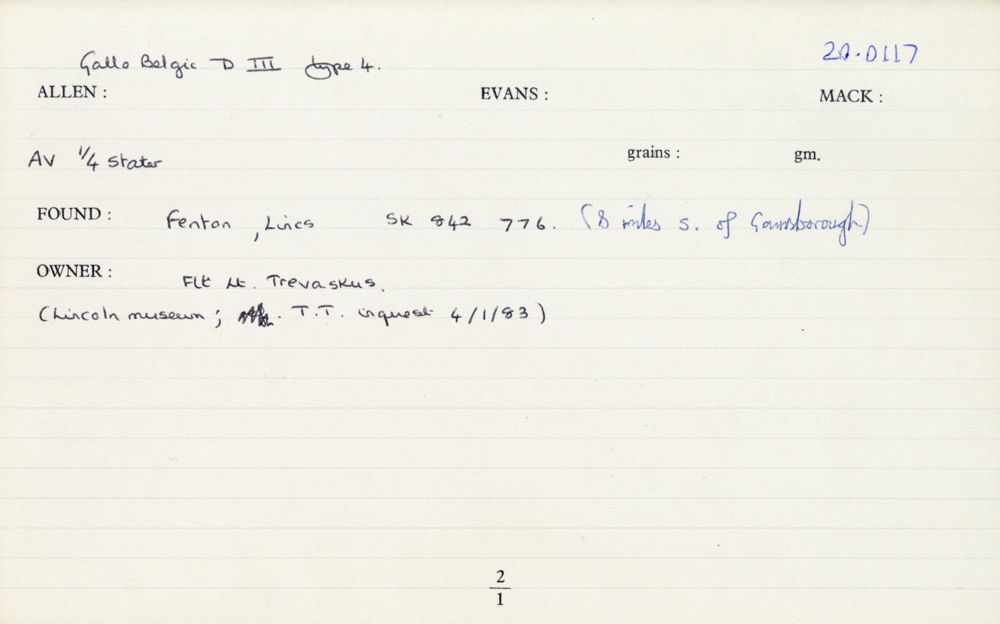 Gallo Belgic D III type 4. 20.0117
ALLEN : EVANS : MACK :
AV 1/4 stater grains : gm.
FOUND : Fenton, Lincs SK 842 776. (8 miles s. of Gainsborough)
OWNER : Flt Lt. Trevaskus.
(Lincoln museum; T.T. inquest 4/1/83)
2
1